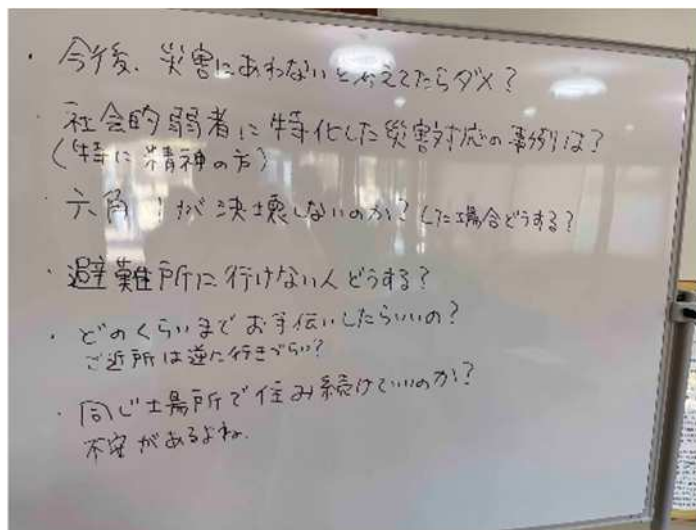 ・今後、災害にあわないと考えてたらダメ？
・社会的弱者に特化した災害対応の事例は？
（特に精神の方）
・六角川が決壊しないのか？した場合どうする？
・避難所に行けない人どうする？
・どのくらいまでお手伝いしたらいいの？
ご近所は逆に行きづらい？
・同じ場所で住み続けていいのか？
不安があるよね。